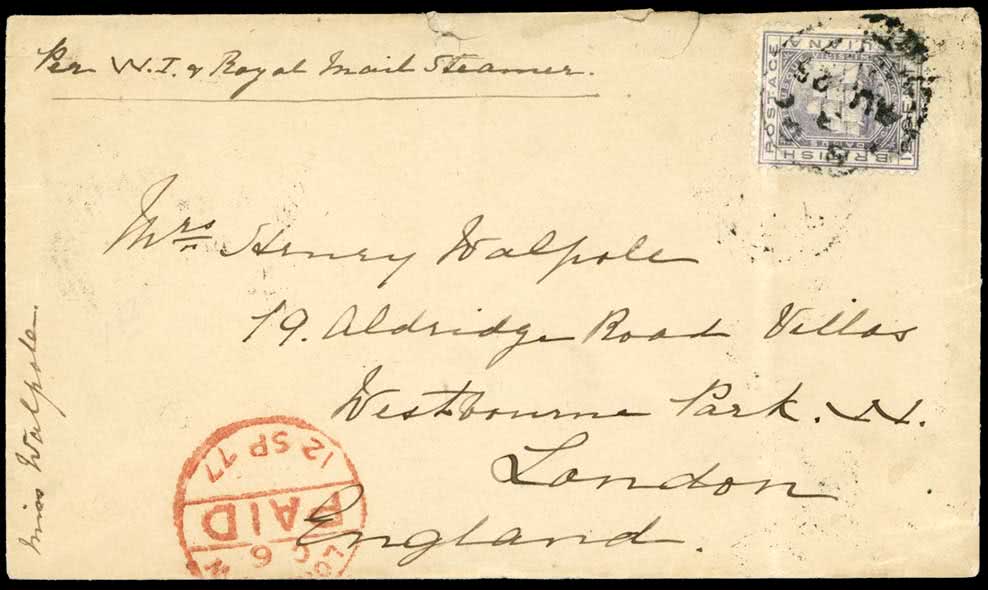 Per W.I. & Royal Mail Steamer.
POSTAGE
BRITISH
GUIANA
AU 25
Mrs Henry Walpole
19. Aldridge Road Villas
Westbourne Park. W.
London
England.
Miss Walpole.
12 SP 77
PAID
6